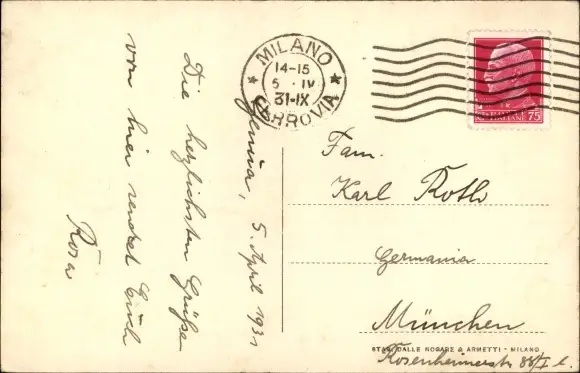 MILANO
14-15
5 · IV
31-IX
FERROVIA
POSTE ITALIANE 75
Genua, 5. April 1931
Die herzlichsten Grüße
von hier sendet Euch
Rosa
Fam.
Karl Roth
Germania
München
Rosenheimerstr. 88/I l.
STAB. DALLE NOGARE & ARMETTI - MILANO